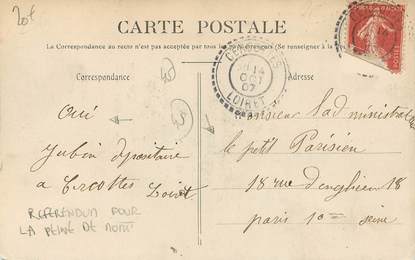 20€
CARTE POSTALE
La Correspondance au recto n'est pas acceptée par tous les pays étrangers (Se renseigner à la
Correspondance
Adresse
CERCOTTES
14
OCT
07
LOIRET
45
45
oui
Jubin dépositaire
a Cercottes Loiret
REFERENDUM POUR
LA PEINE DE MORT
monsieur Ladministra
le petit Parisien
18 rue Denghien 18
paris 10e Seine